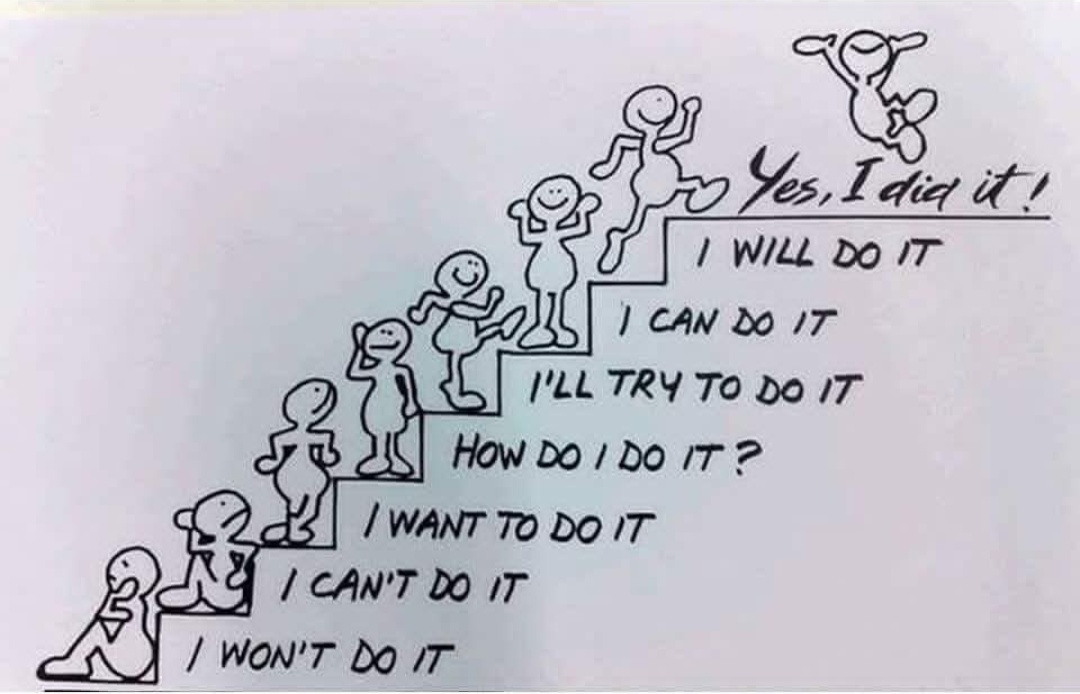 Yes, I did it!
I WILL DO IT
I CAN DO IT
I'LL TRY TO DO IT
HOW DO I DO IT?
I WANT TO DO IT
I CAN'T DO IT
I WON'T DO IT